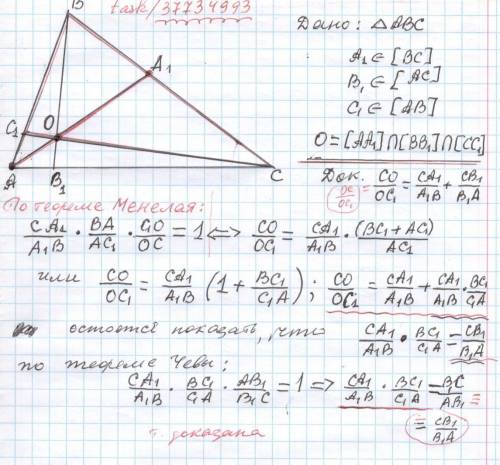 task/37734993
Дано: △ABC
A₁ ∈ [BC]
B₁ ∈ [AC]
C₁ ∈ [AB]
O = [AA₁] ∩ [BB₁] ∩ [CC₁]
B
A₁
C₁
O
A
B₁
C
Док. CO/OC₁ = CA₁/A₁B + CB₁/B₁A
OC/OC₁ =
По теореме Менелая:
CA₁/A₁B · BA/AC₁ · C₁O/OC = 1 <=> CO/OC₁ = CA₁/A₁B · (BC₁ + AC₁)/AC₁
или CO/OC₁ = CA₁/A₁B (1 + BC₁/C₁A); CO/OC₁ = CA₁/A₁B + CA₁/A₁B · BC₁/C₁A
остается показать, что CA₁/A₁B · BC₁/C₁A = CB₁/B₁A
по теореме Чевы:
CA₁/A₁B · BC₁/C₁A · AB₁/B₁C = 1 => CA₁/A₁B · BC₁/C₁A = B₁C/AB₁ =
= CB₁/B₁A
т. доказана